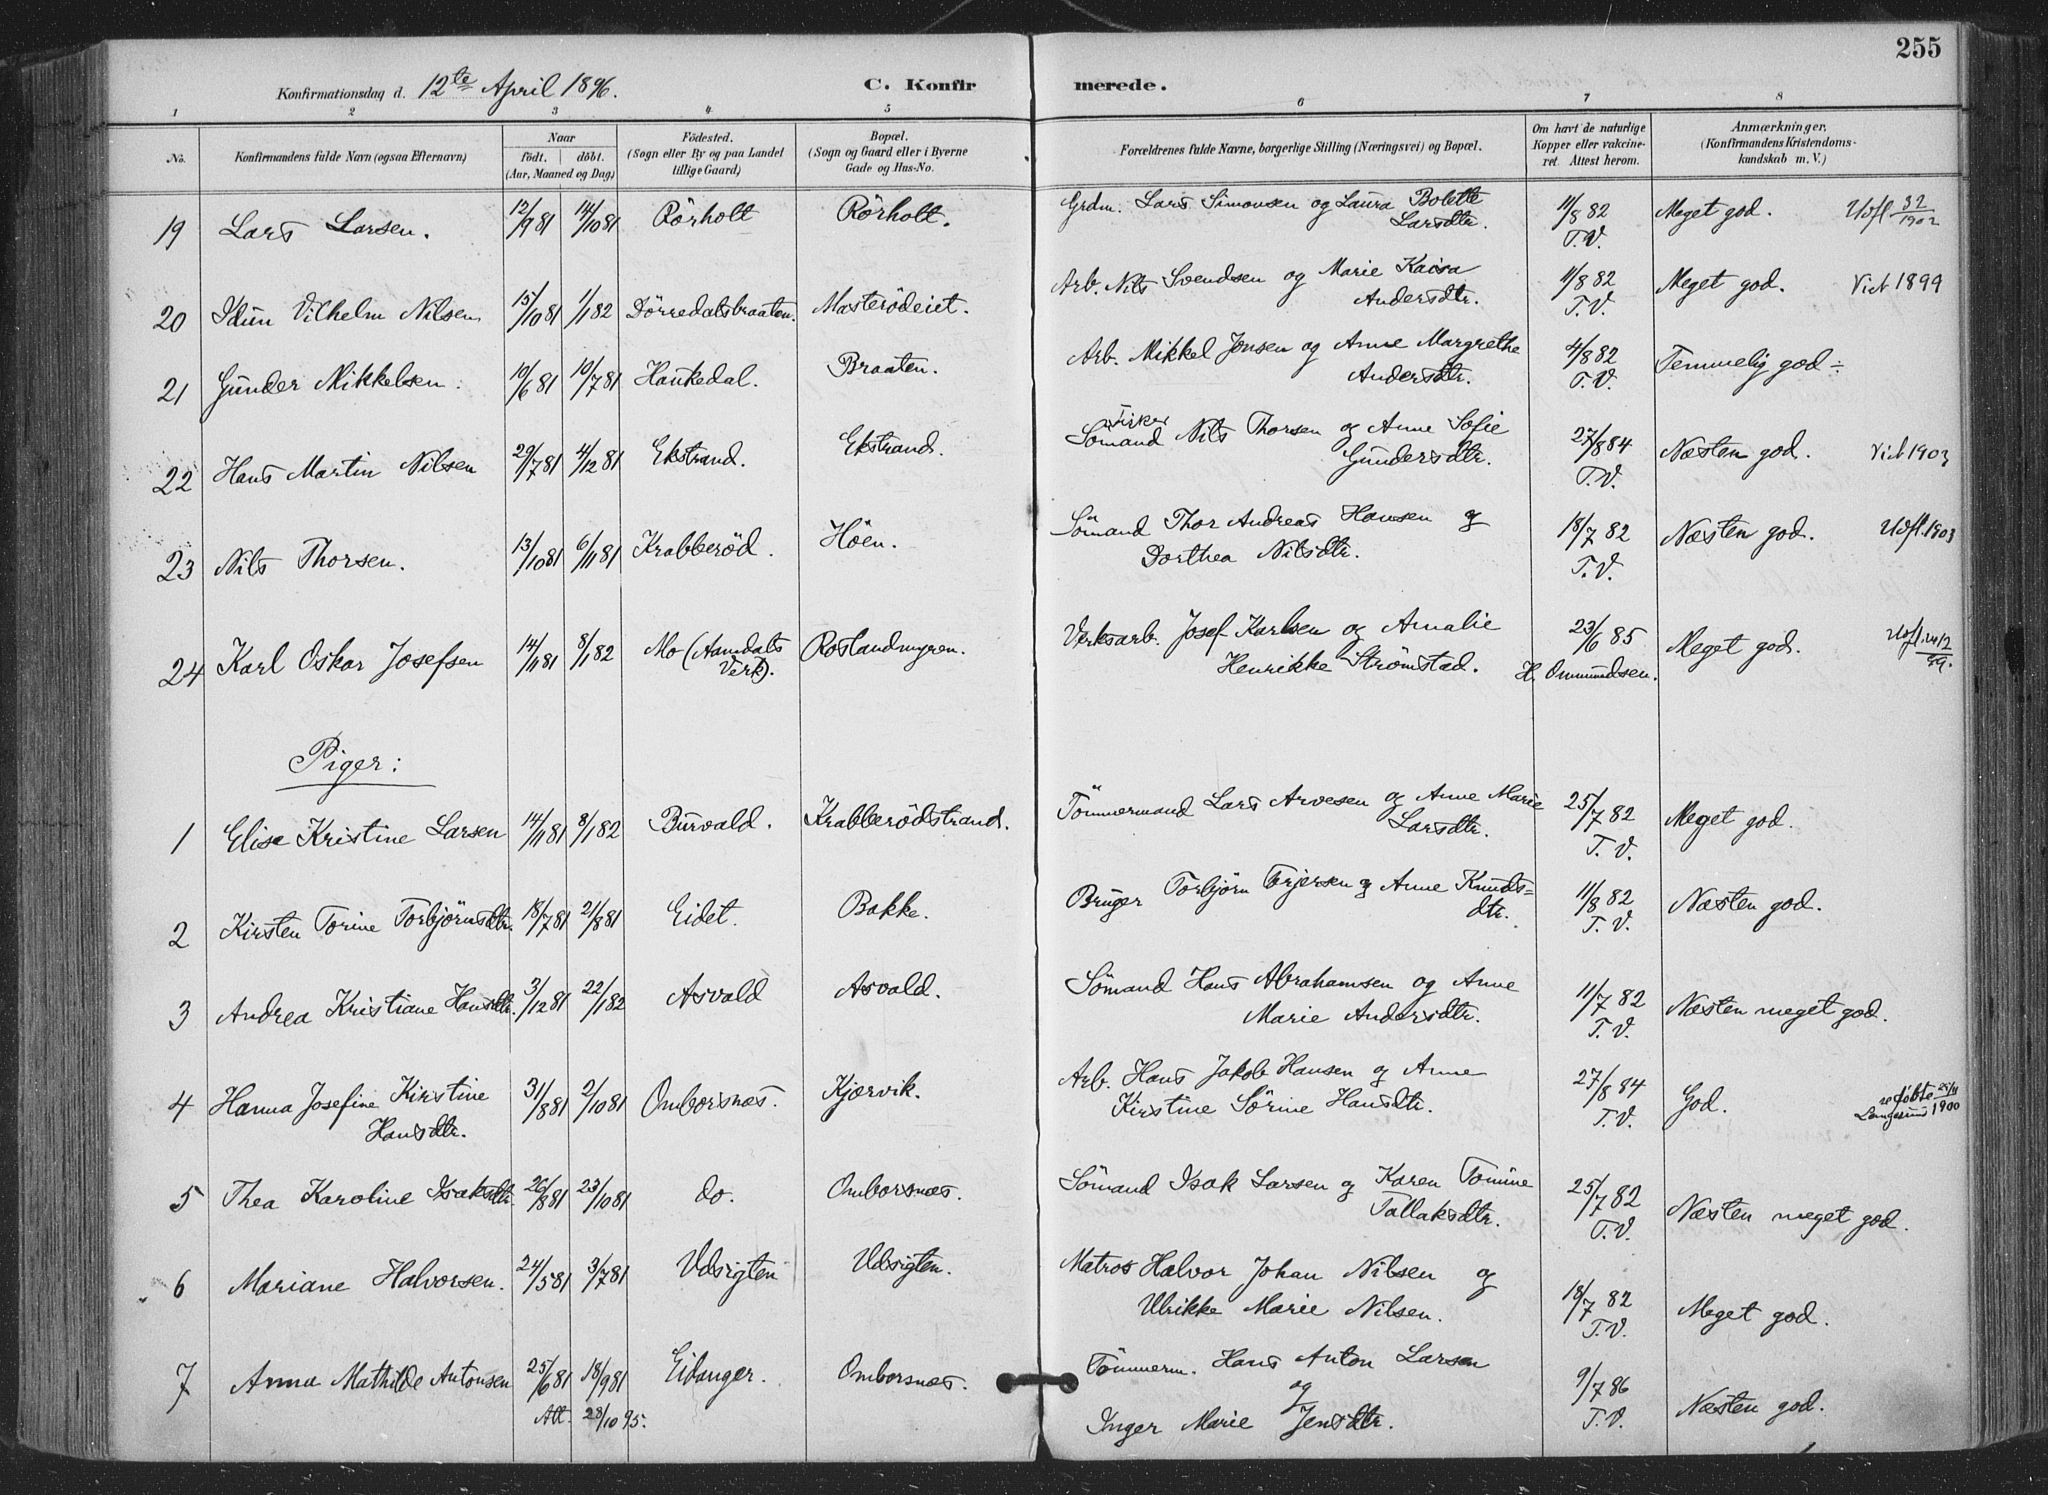 255
Konfirmationsdag d. 12te April 1896. C. Konfirmerede.
1 2 3 4 5 6 7 8
No. Konfirmandens fulde Navn (ogsaa Efternavn) Naar født. døbt. (Aar, Maaned og Dag) Födested. (Sogn eller By og paa Landet tillige Gaard) Bopæl. (Sogn og Gaard eller i Byerne Gade og Hus-No. Forældrenes fulde Navne, borgerlige Stilling (Næringsvei) og Bopæl. Om havt de naturlige Kopper eller vakcineret. Attest herom. Anmærkninger. (Konfirmandens Kristendomskundskab m. V.)
19 Lars Larsen. 12/9 81 14/10 81 Rörholt Rörholt. Grdm. Lars Simonsen og Laura Bolette Larsdtr. 11/8 82 T.V. Meget god. Udfl 32/1902
20 Vilhelm Nilsen 15/10 81 1/1 82 Dörredalsbraaten. Masterödeiet. Arb. Nils Svendsen og Marie Kaisa Andersdtr. 11/8 82 T.V. Meget god. Viet 1899
21 Gunder Mikkelsen. 10/6 81 10/7 81 Haukedal. Braaten. Arb. Mikkel Jensen og Anne Margrethe Andersdtr. 4/8 82 T.V. Temmelig god ÷
22 Hans Martin Nilsen 29/7 81 4/12 81 Ekstrand. Ekstrand. Fisker Sömand Nils Thorsen og Anne Sofie Gundersdtr. 27/8 84 T.V. Næsten god. Viet 1903
23 Nils Thorsen. 13/10 81 6/11 81 Krabberød. Höen. Sömand Thor Andreas Hansen og Dorthea Nilsdtr. 18/7 82 T.V. Næsten god. Udfl. 1903
24 Karl Oskar Josefsen 14/11 81 8/1 82 Mo (Aamdals Verk). Roslandmyren. Verksarb. Josef Karlsen og Amalie Henrikke Strømstad. 23/6 85 H. Ommundsen. Meget god.
Piger:
1 Elise Kristine Larsen 14/11 81 8/1 82 Burvald. Krabberödstrand. Tömmermand Lars Arvesen og Anne Marie Larsdtr. 25/7 82 T.V. Meget god.
2 Kirsten Torine Torbjörnsdtr. 18/7 81 21/8 81 Eidet. Bakke. Bruger Torbjørn Terjersen og Anne Knudsdtr. 11/8 82 T.V. Næsten god.
3 Andrea Kristiane Hansdtr. 3/12 81 22/1 82 Asvald Asvald. Sömand Hans Abrahamsen og Anne Marie Andersdtr. 11/7 82 T.V. Næsten meget god.
4 Hanna Josefine Kirstine Hansdtr. 31/8 81 2/10 81 Omborsnæs. Kjørvik. Arb. Hans Jakob Hansen og Anne Kirstine Sörine Hansdtr. 27/8 84 T.V. God. Langesund 1900
5 Thea Karoline Isaksdtr. 26/8 81 23/10 81 do. Omborsnæs. Sömand Isak Larsen og Karen Tomine Tallaksdtr. 25/7 82 T.V. Næsten meget god.
6 Mariane Halvorsen. 24/5 81 3/7 81 Udsigten Udsigten. Matros Halvor Johan Nilsen og Ulrikke Marie Nilsen. 18/7 82 T.V. Meget god.
7 Anna Mathilde Antonsen 25/6 81 18/9 81 Att. 28/10 95. Eidanger. Omborsnæs. Tömmerm. Hans Anton Larsen og Inger Marie Jensdtr. 9/7 86 T.V. Næsten god.